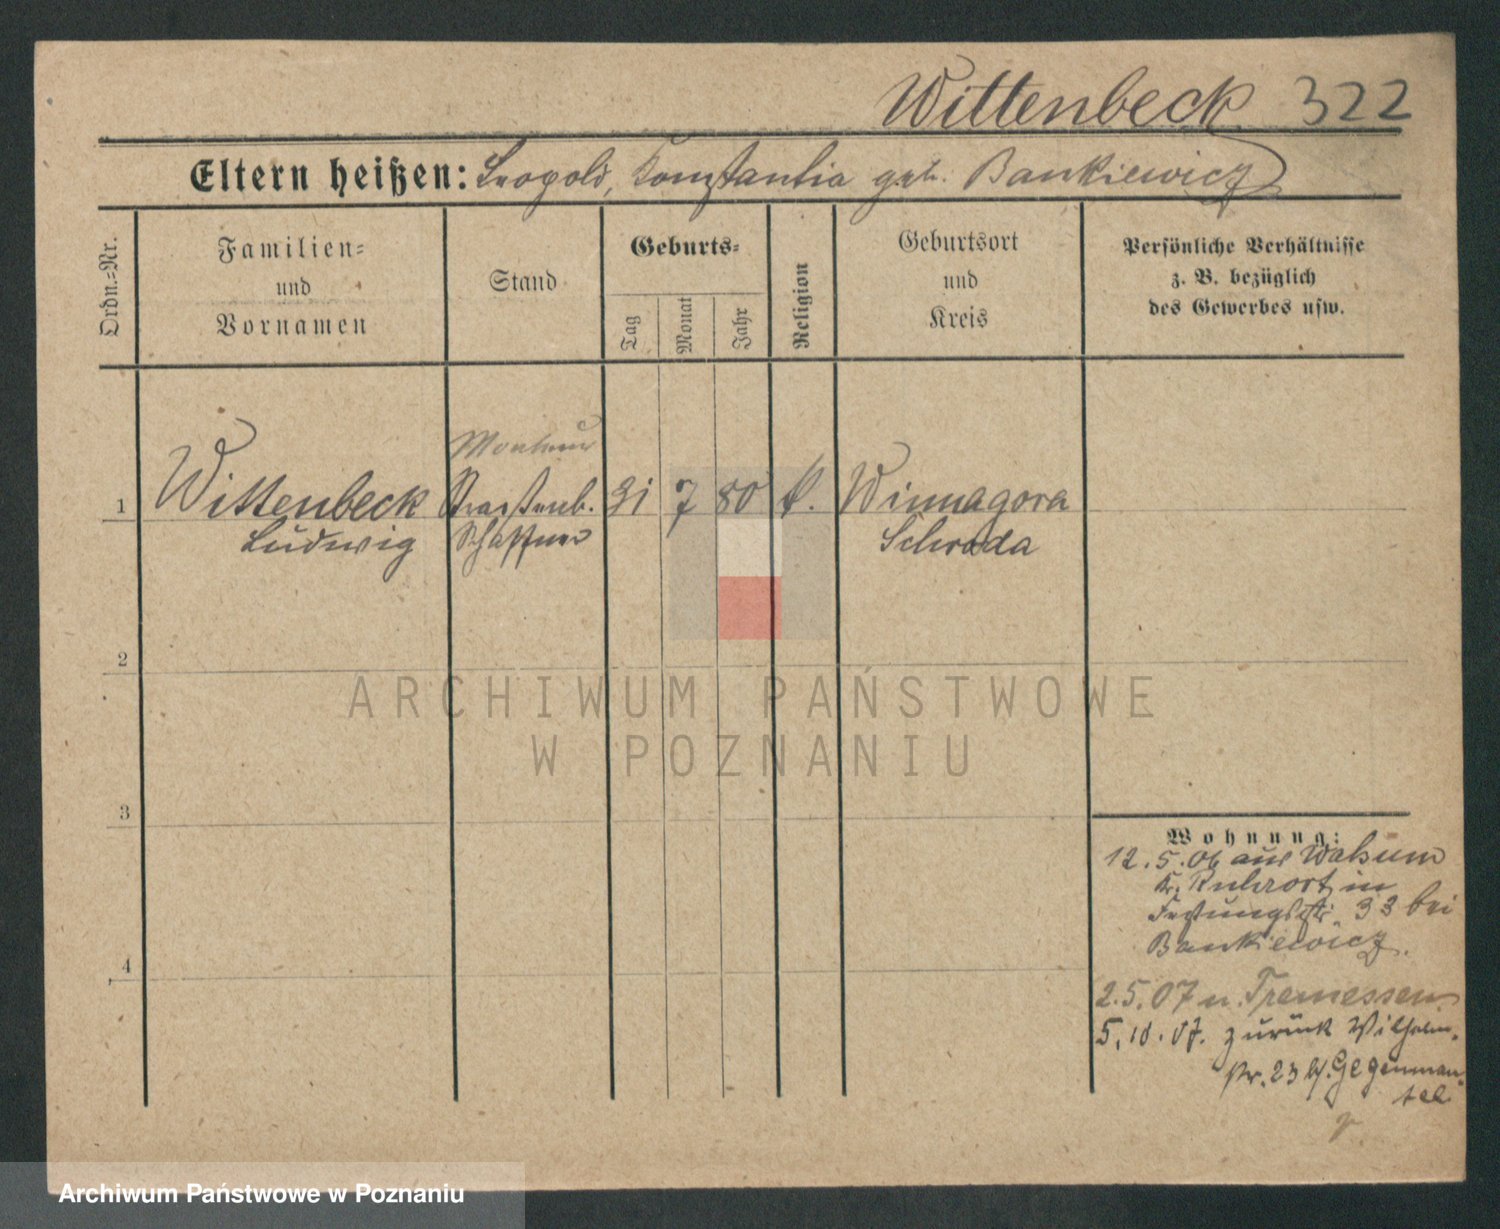 Wittenbeck 322
Eltern heißen: Leopold, Konstantia geb. Bankiewicz
Ordn.=Nr.
Familien=
und
Vornamen
Stand
Geburts=
Tag
Monat
Jahr
Religion
Geburtsort
und
Kreis
Persönliche Verhältnisse
z. B. bezüglich
des Gewerbes usw.
Monteur
1 Wittenbeck Straßenb. 31 7 80 k. Winnagora
Ludwig Schaffner Schroda
2
ARCHIWUM PAŃSTWOWE
W POZNANIU
3
Wohnung:
12.5.06 aus Walsum
Kr. Ruhrort in
Festungsstr. 33 bei
Bankiewicz.
4
2.5.07 n. Tremessen
5.10.07. zurück Wilhelm-
str. 23 b/.
Archiwum Państwowe w Poznaniu